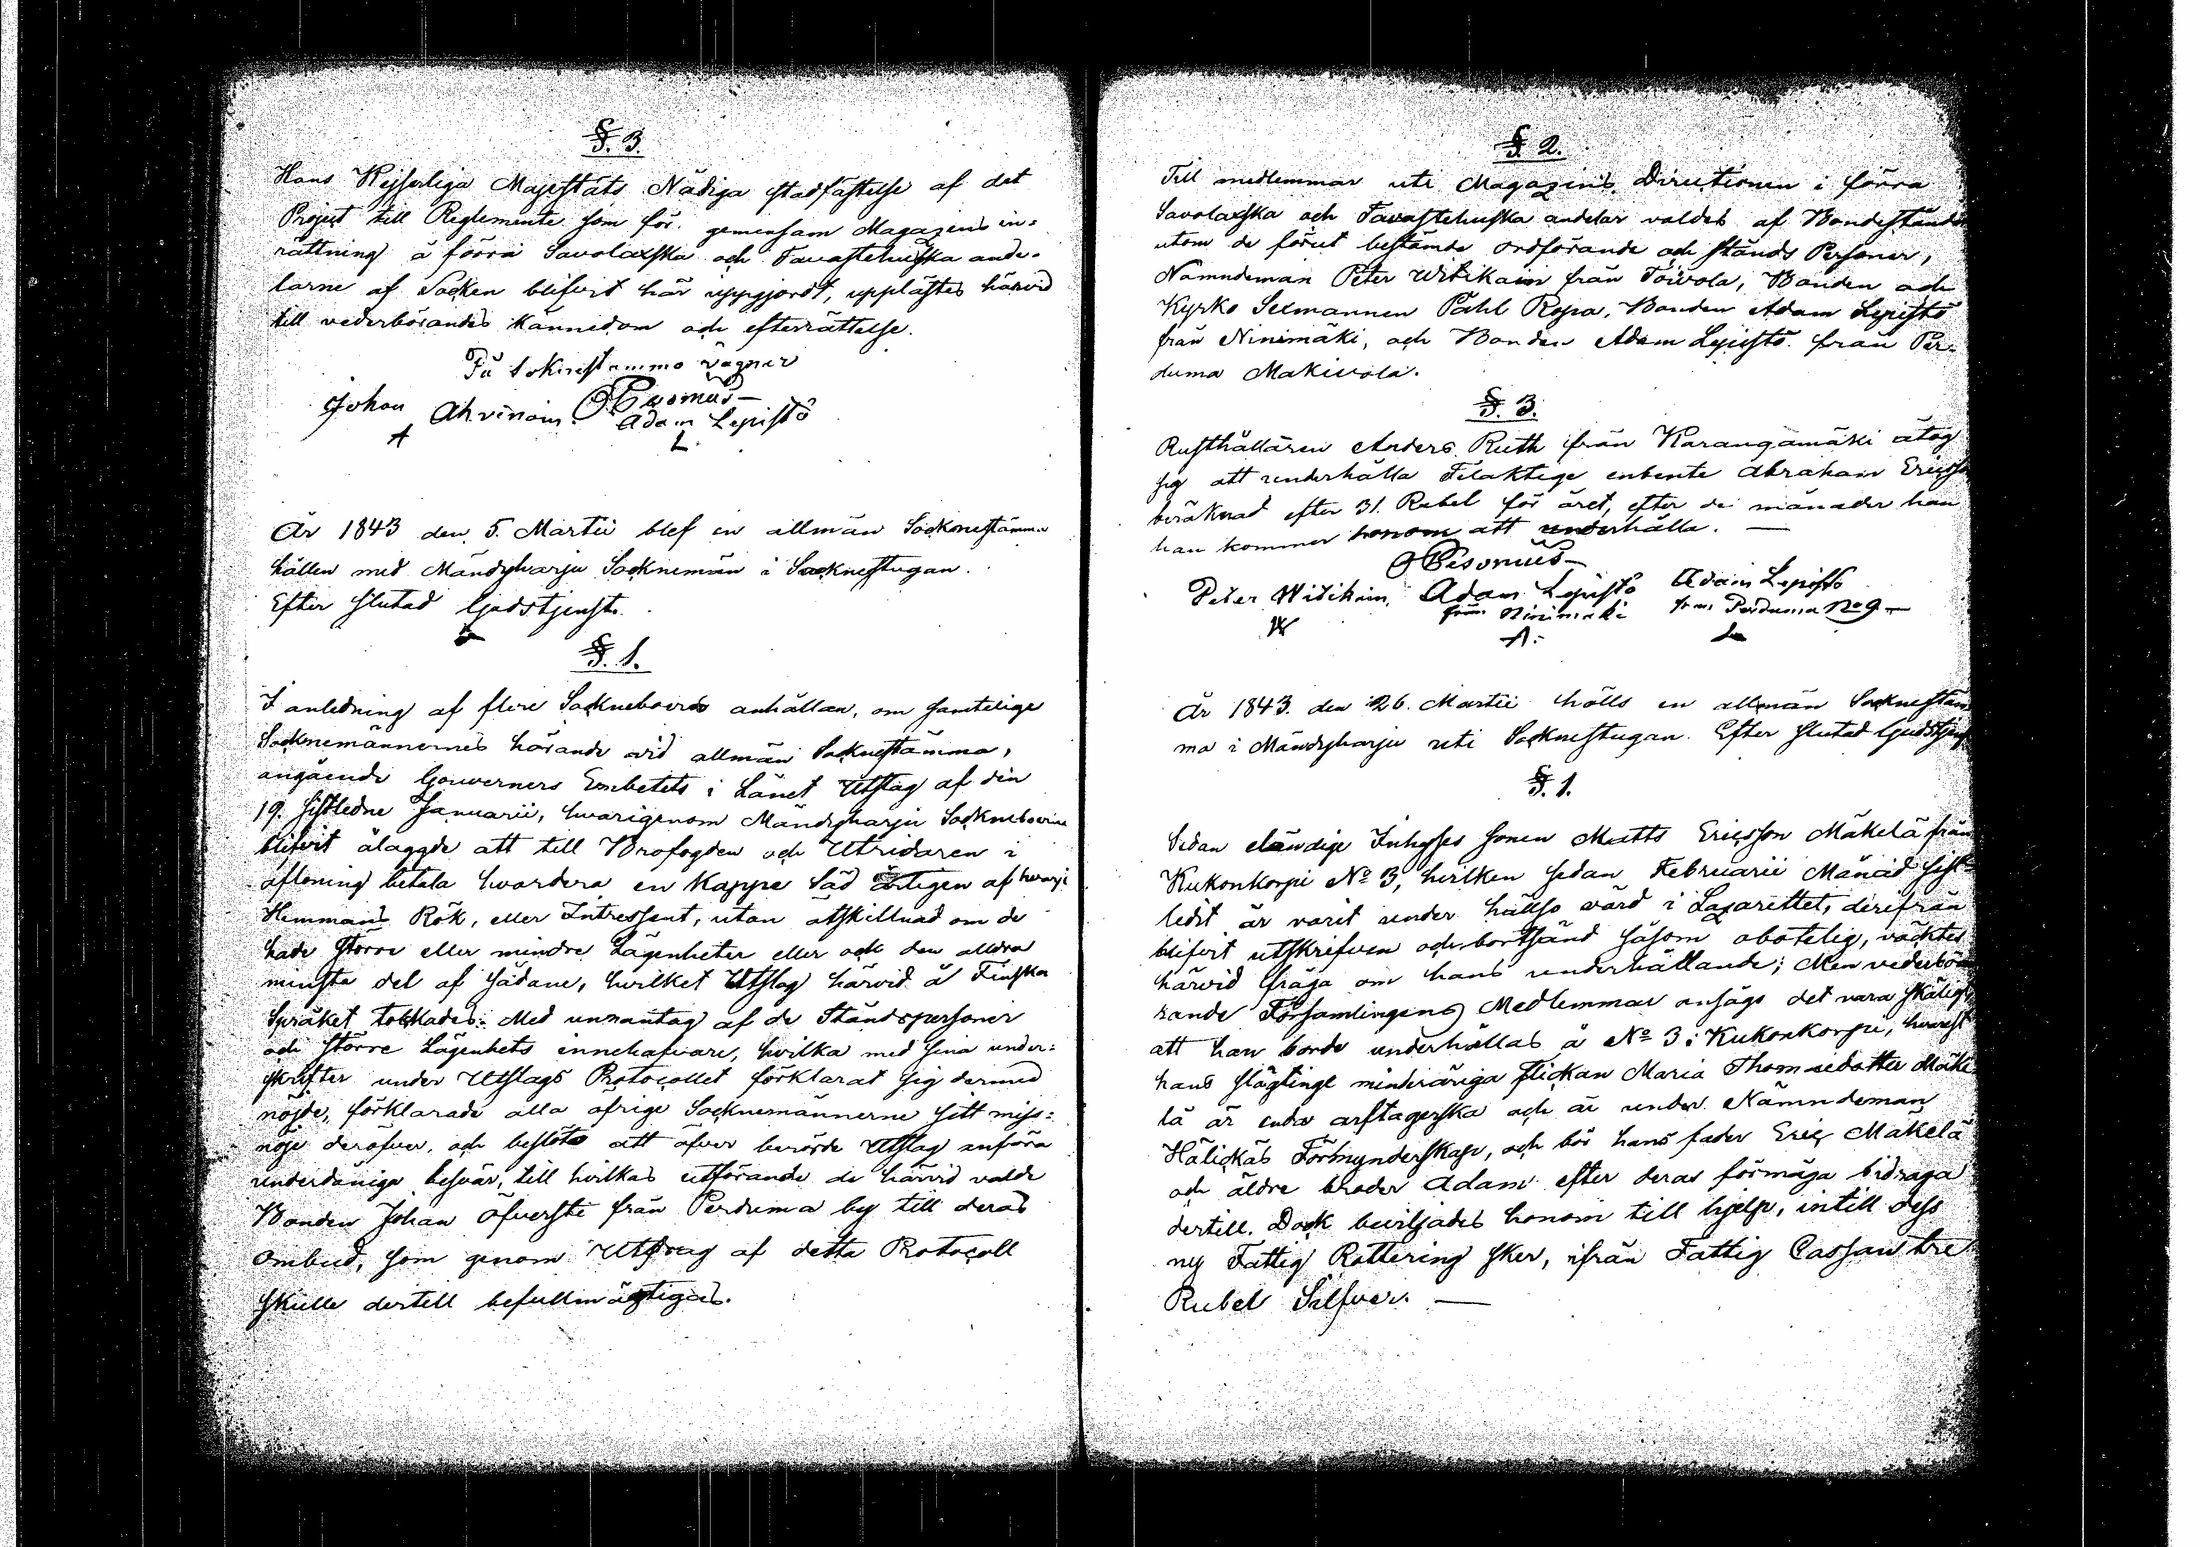 §. 3.
Hans Kejserliga Majestäts Nådiga stadfästelse af det
Project till Reglemente som för gemensam Magazins in-
rättning å förra Savolaxska och Tavastehuska ande-
larne af Socken blifvit här uppgjordt, upplästes härvid
till vederbörandes kännedom och efterrättelse.
På Soknestammo vägnar
Johan Ahvinain Adam Lepistö
A L
År 1843 den 5. Martii blef en allmän Socknestämma
hållen med Mändyharju Socknemän i Socknestugan.
Efter slutad Gudstjenst.
§. 1.
I anledning af flere Sockneboers anhållan, om samtelige
Socknemännernes hörande vid allmän Socknestämma,
angående Gouverners Embetets i Länet Utslag af den
19. sistledne Januarii, hvarigenom Mändyharju Socknboerne
blifvit ålaggde att till Brofogden och Utridaren i
aflöning betala hvardera en Kappe Säd årligen af hvarje
Hemmans Rök, eller Intressent, utan åtskillnad om de
hade större eller mindre Lägenheter eller och den aldra
minsta del af sådane, hvilket Utslag härvid å Finska
Språket tolkades: Med unnantag af de Ståndspersoner
och större Lägenhets innehafvare, hvilka med sina under-
skrifter under Utslags Protocollet förklarat sig dermed
nöjde, förklarade alla öfrige Socknemännerne sitt miss-
nöje deröfver, och beslöto att öfver berörde Utslag anföra
underdåniga besvär, till hvilkas utförande de härvid valde
Bonden Johan Öfverste från Perduma by till deras
ombud, som genom Utdrag af detta Protocoll
skulle dertill befullmägtigas.
§. 2.
Till medlemmar uti Magazins Directionen i förra
Savolaxska och Tavastehuska andelar valdes af Bondestånde
utom de förut bestämde ordförande och stånds Personer,
Nämndeman Peter Witikain från Toivola, Bonden och
Kyrko Sexmannen Påhl Ropa, Bonden Adam Lepistö
från Ninimäki, och Bonden Adam Lepistö från Per-
duma Makivola.
§. 3.
Rusthållaren Anders Ruth från Karangamäki åtog
sig att underhålla Felaktige enbente Abraham Ericsso
beräknad efter 31. Rubel för året, efter de månader han
han kommer honom att underhålla. —
Peter Witikain, Adam Lepistö Adam Lepistö
från Ninimäki från Perduma No 9 —
W A: L
År 1843. den 26. Martii hölls en allmän Socknestäm
ma i Mändyharju uti Socknestugan. Efter slutad Gudstjenst
§. 1.
Sedan eländige Inhyses sonen Matts Ericsson Mäkelä från
Kukonkorpi No 3, hvilken sedan Februarii Månad sist-
ledit är varit under hälso vård i Lazarettet, derifrån
blifvit utskrifven och bortsänd såsom obotelig, väcktes
härvid fråga om hans underhållande; Men vederbö
rande Församlingens Medlemmar ansågs det vara skäligt,
att han borde underhållas å No 3 i Kukonkorpi, hvarest
hans slägtinge minderåriga flickan Maria Thomædotter Mäke
lä är enda arftagerska och är under Nämndeman
Hälickäs Förmynderskap, och bör hans fader Eric Mäkelä
och äldre broder Adam efter deras förmåga bidraga
dertill. Dock beviljades honom till hjelp, intill dess
ny Fattig Rottering sker, ifrån Fattig Cassan tre
Rubel Silfver. —